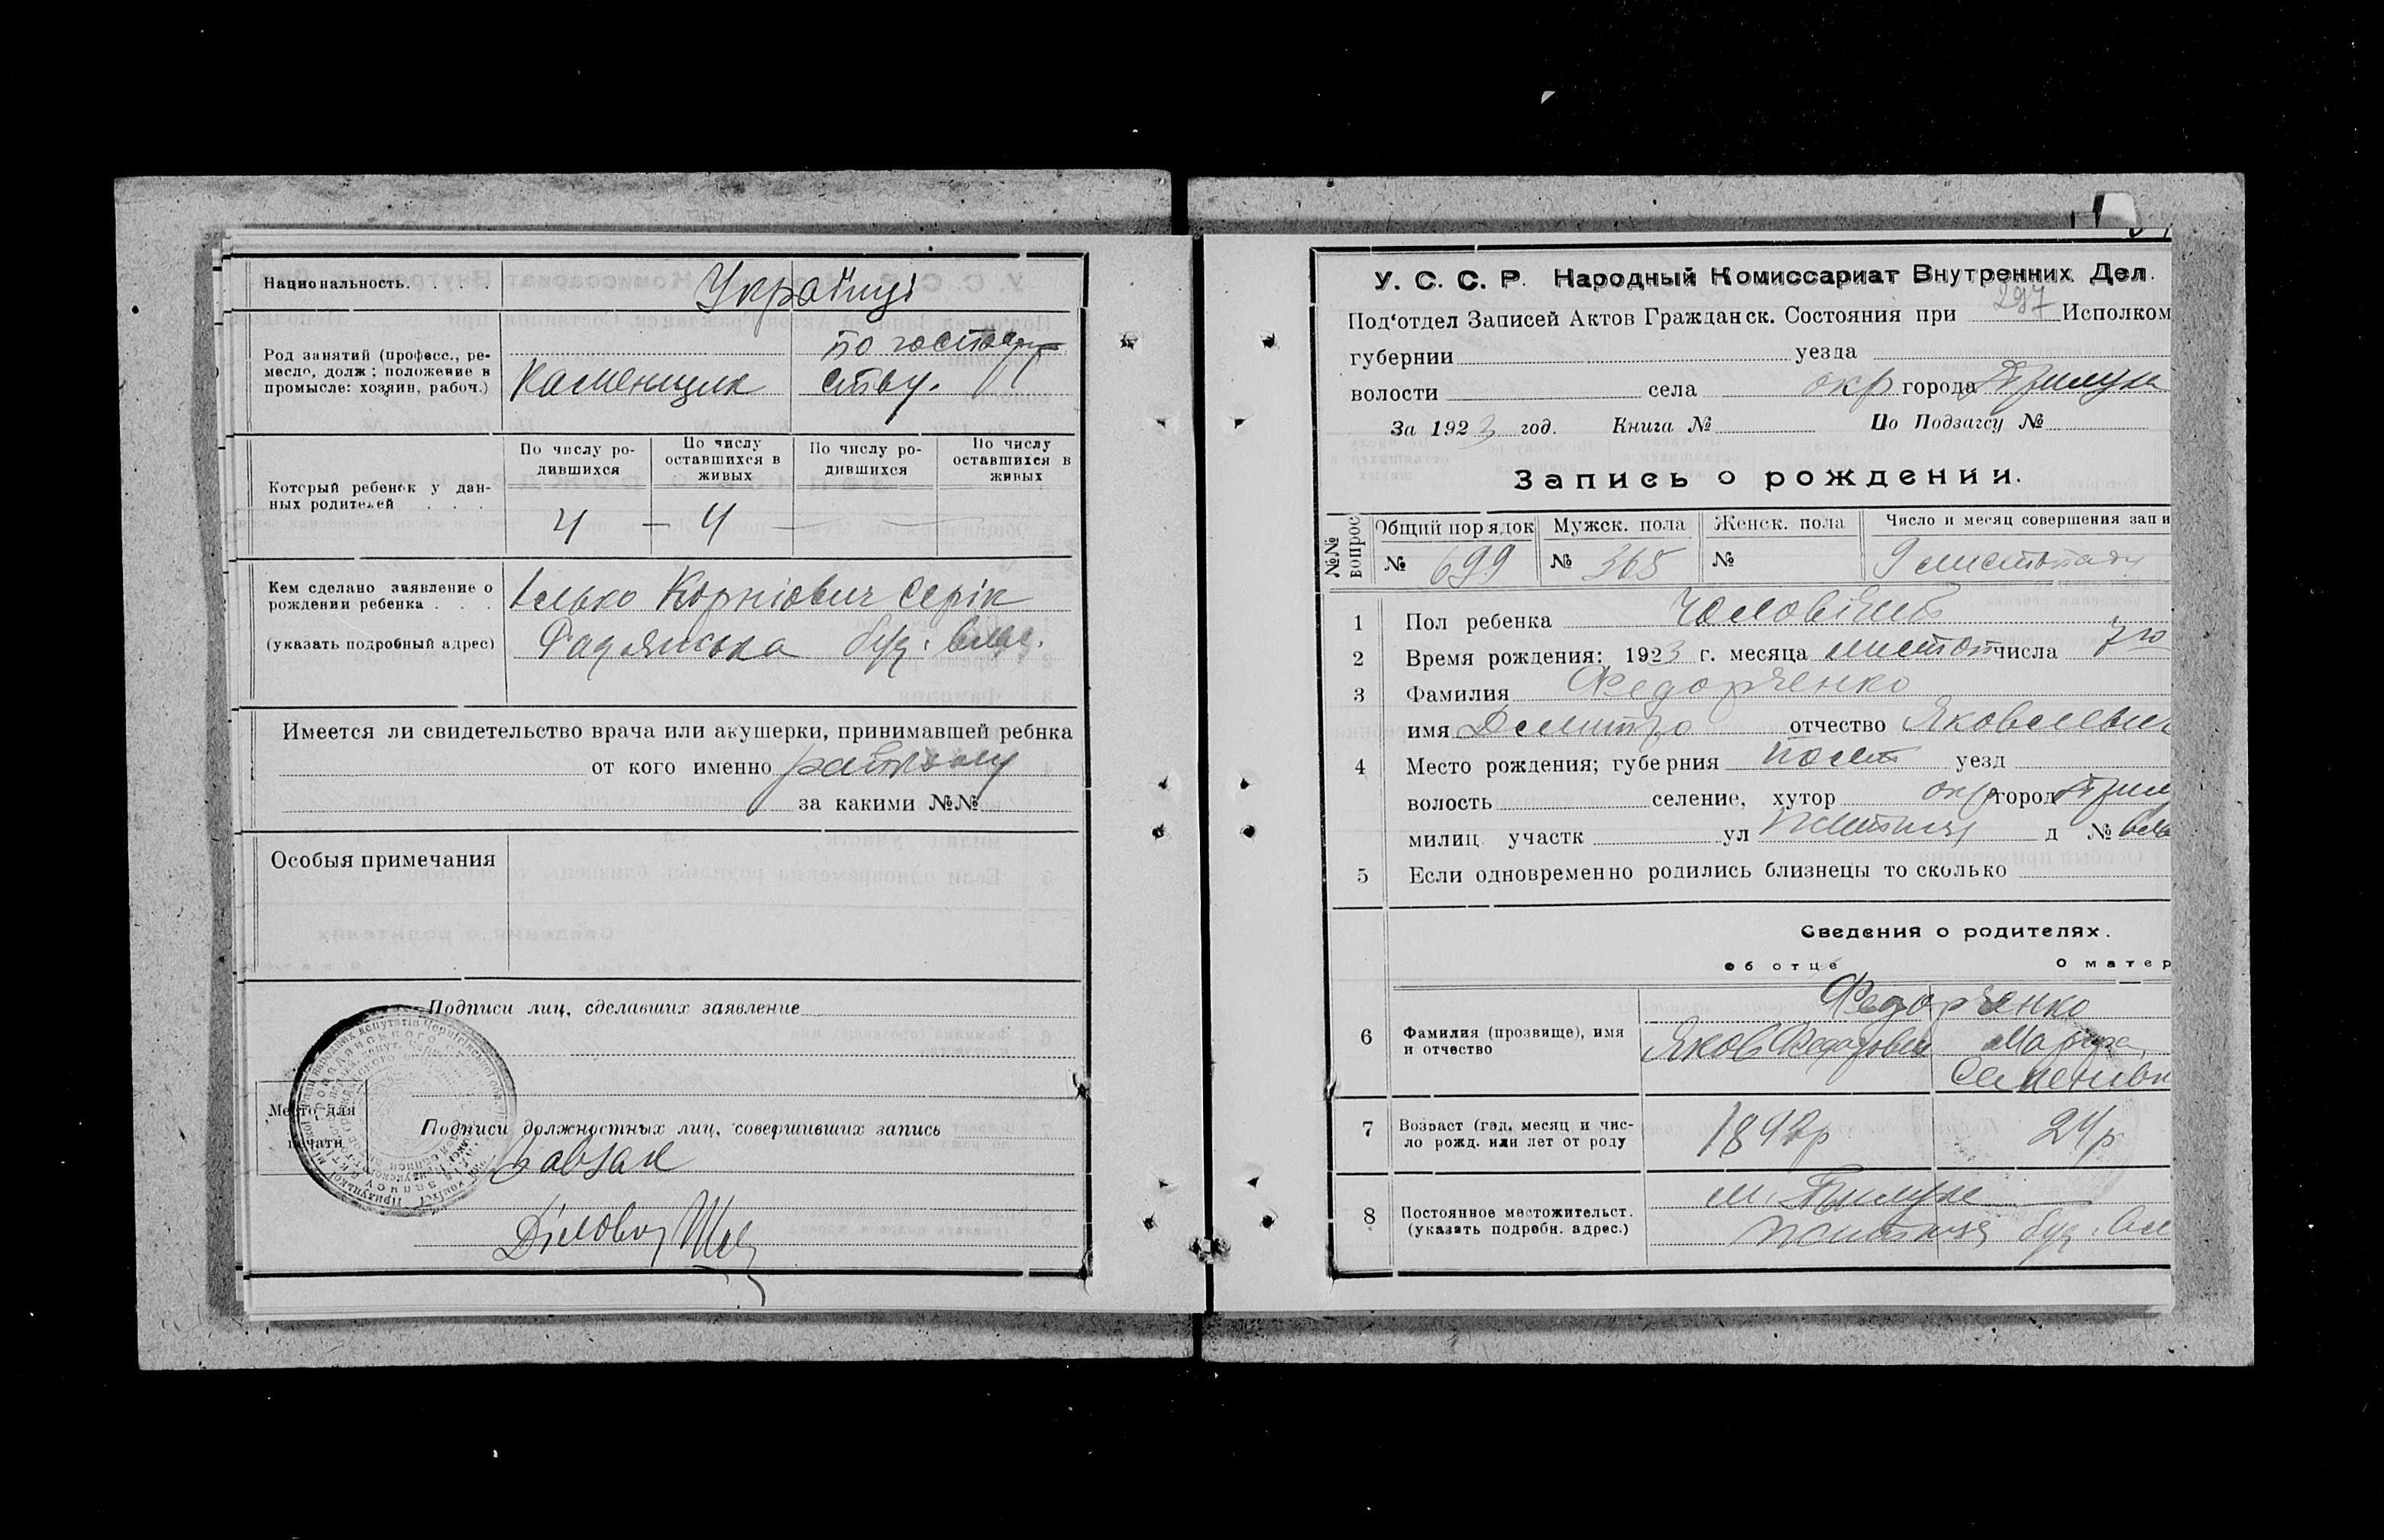 Национальность. . . . . Українці
Род занятий (професс., ре-
месло, долж; положение в
промысле: хозяин, рабоч.)
Каменщик
по господар
ству.
Который ребенок у дан-
ных родителей . . .
По числу ро-
дившихся
По числу
оставшихся в
живых
По числу ро-
дившихся
По числу
оставшихся в
живых
4 — 4 —
Кем сделано заявление о
рождении ребенка . . .
(указать подробный адрес)
Ілько Корніович Серік
Радянська буд. влас.
Имеется ли свидетельство врача или акушерки, принимавшей ребнка
от кого именно
за какими №№
Особыя примечания
Подписи лиц, сделавших заявление
Место для
печати
Подписи должностных лиц, совершивших запись
Завзаг
Діловод
У. С. С. Р. Народный Комиссариат Внутренних Дел.
Под‘отдел Записей Актов Гражданск. Состояния при 297 Исполком
губернии уезда
волости села окр города Прилуки
За 1923 год. Книга № По Подзагсу №
Запись о рождении.
№№
вопрос
Общий порядок
№ 699
Мужск. пола
№ 365
Женск. пола
№
Число и месяц совершения запи
9 листопаду
1 Пол ребенка Чоловічит
2 Время рождения: 1923 г. месяца листоп числа 7го
3 Фамилия Федорченко
имя Дмитро отчество Яковлевич
4 Место рождения; губерния Полт уезд
волость селение, хутор окр город Прил
милиц участк ул д № вла
5 Если одновременно родились близнецы то сколько
Сведения о родителях.
об отце О матер
6 Фамилия (прозвище), имя
и отчество
Федорченко
Яков Федорович
Марфа
Семенівн
7 Возраст (год, месяц и чис-
ло рожд. или лет от роду
24р
8 Постоянное местожительст.
(указать подробн. адрес.)
м. Прилуки
буд. Вл